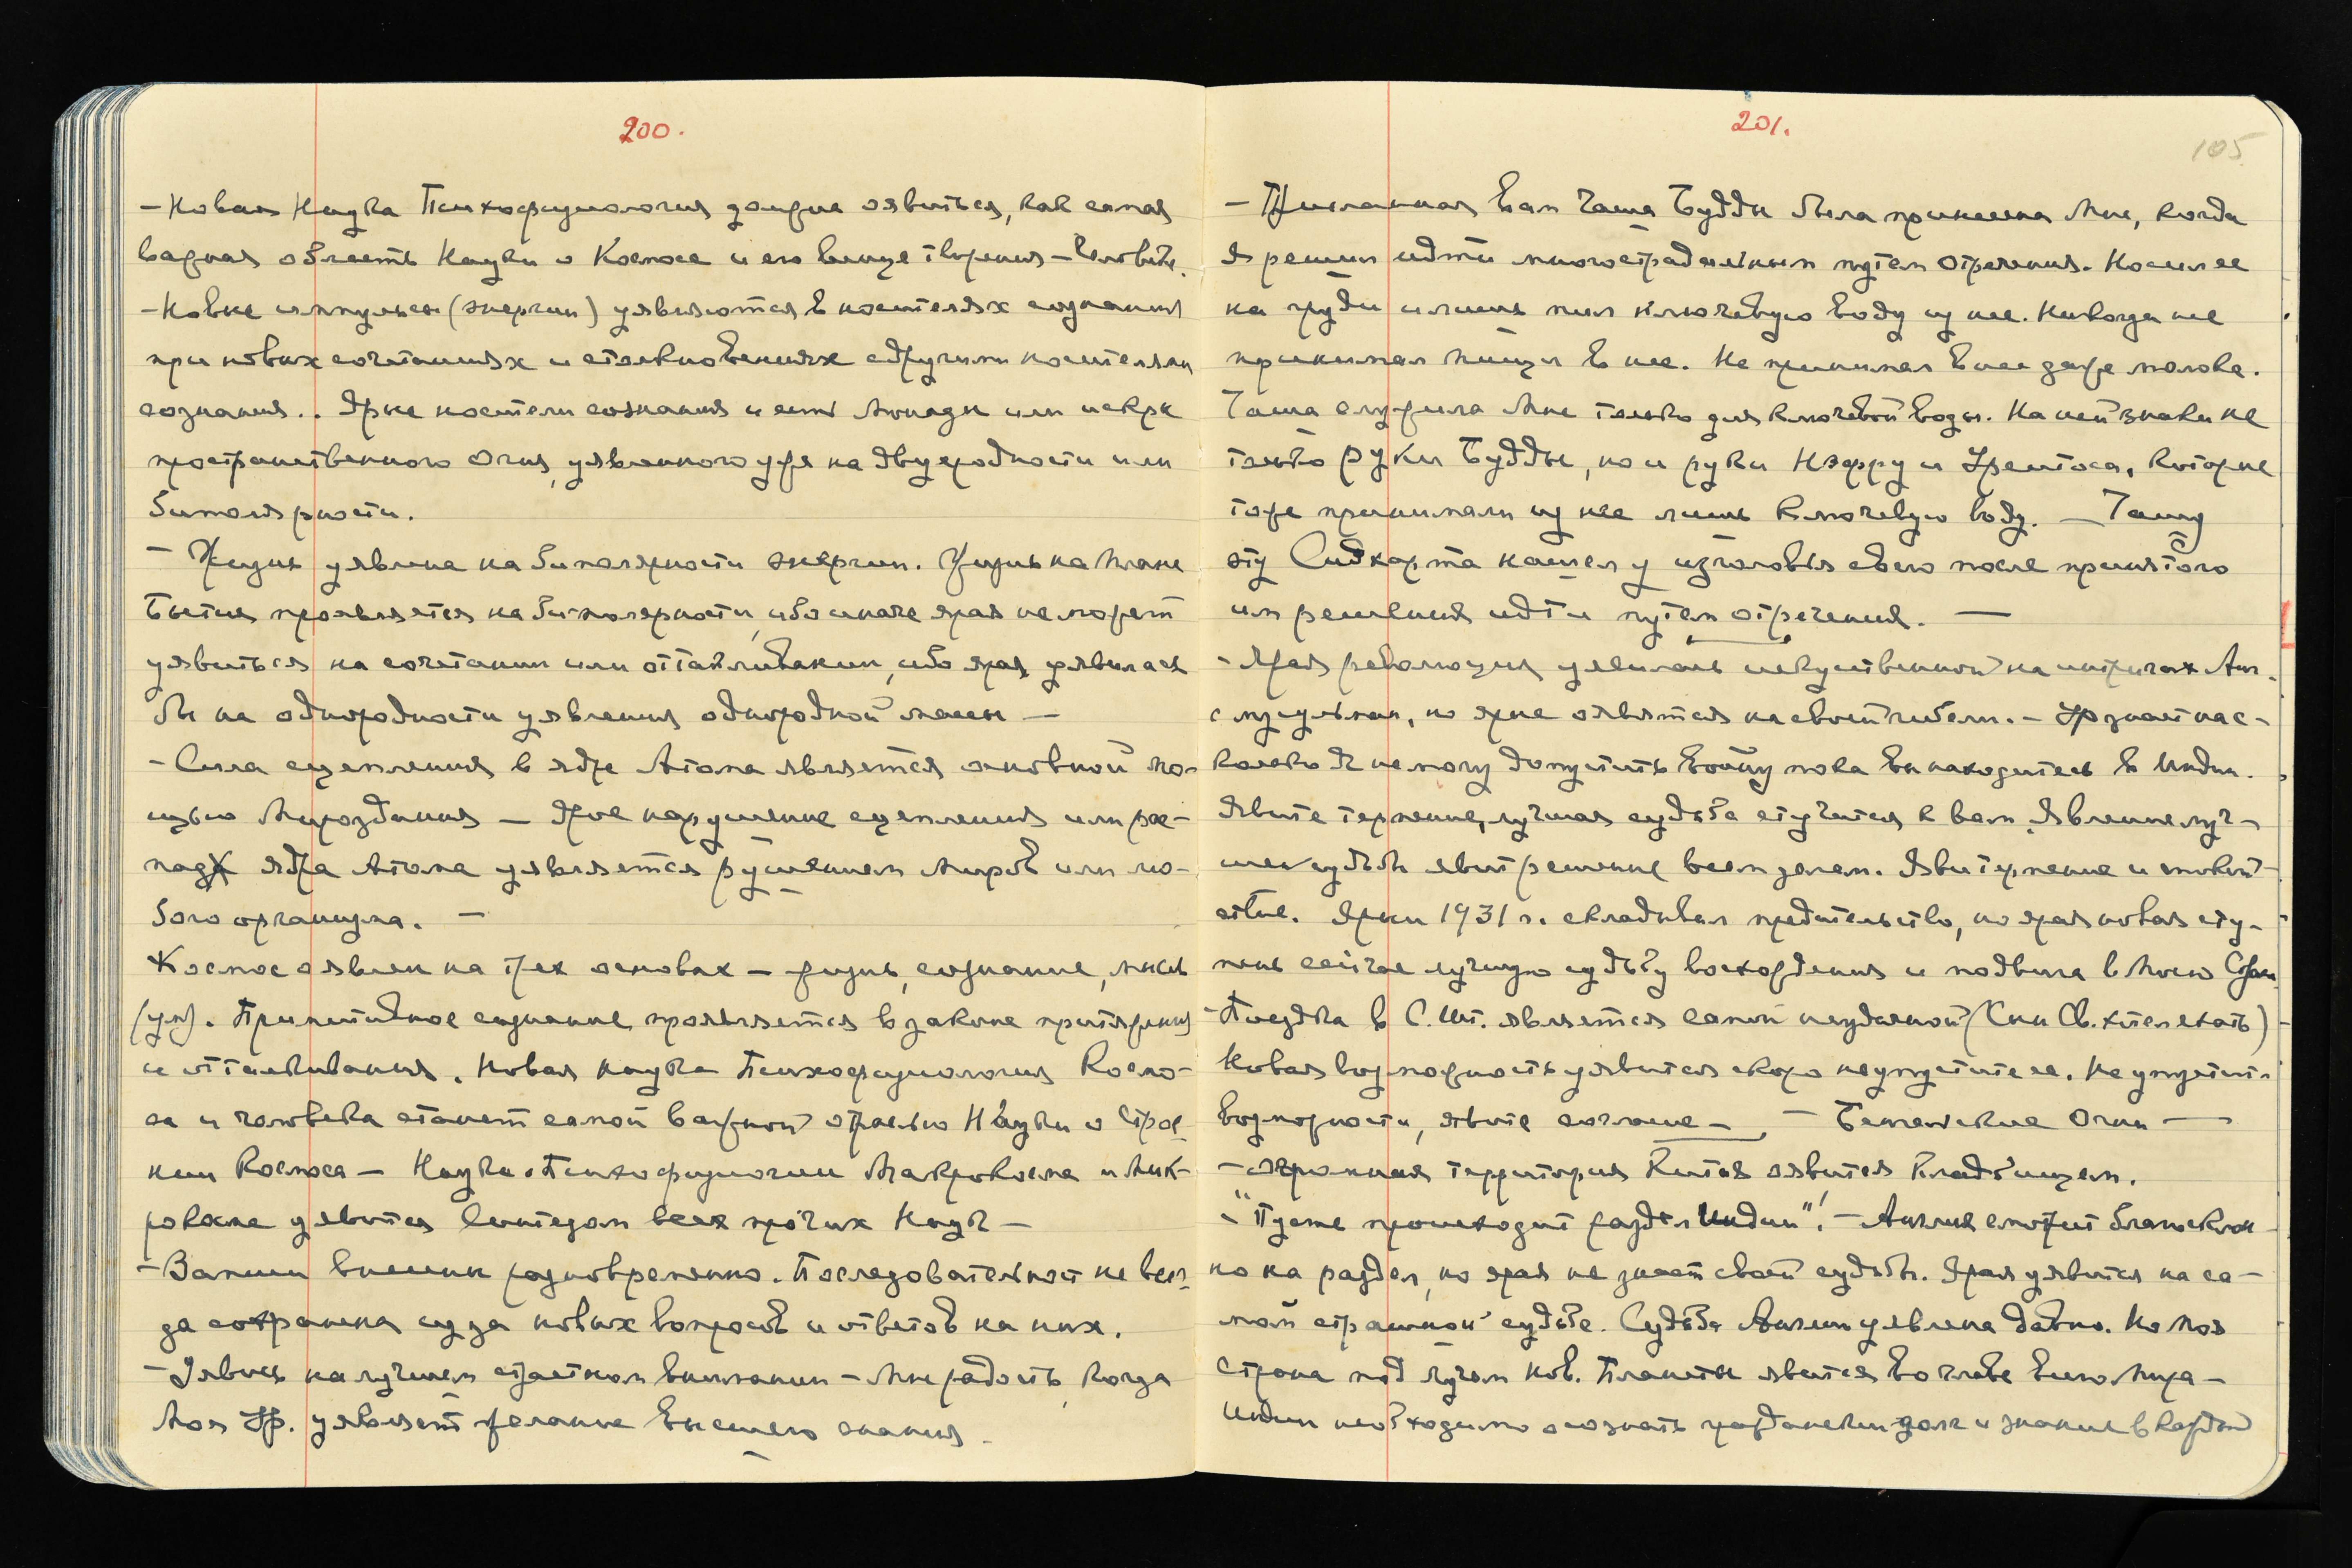 200.
- Новая Наука Психофизиология должна оявиться, как самая
важная область Науки о Космосе и его венце творения - Человеке.
- Новые импульсы (энергии) уявляются в носителях сознания
при новых сочетаниях и столкновениях с другими носителями
сознания.. Ярые носители сознания и есть Монады или искры
пространственного Огня, уявленного уже на двуродности или
биполярности.
- Жизнь уявлена на биполярности энергии. Жизнь на плане
Бытия проявляется на биполярности, ибо иначе ярая не может
уявиться на сочетании или отталкивании, ибо ярая уявилась
бы на однородности уявления однородной массы -
- Сила сцепления в ядре Атома является основной мо-
щью Мироздания - Ярое нарушение сцепления или рас-
пад ядра Атома уявляется рушением Миров или лю-
бого организма. -
Космос оявлен на трех основах - жизнь, сознание, мысль
(ум). Примитивное сознание проявляется в законе притяжения
и отталкивания. Новая наука Психофизиология Космо-
са и человека станет самой важной отраслью Науки о строе-
нии Космоса - Наука Психофизиологии Макрокосма и Мик-
рокосма уявится синтезом всех прочих Наук -
- Запиши внешни разновременно. Последовательность не все-
да сохранена из за новых вопросов и ответов на них.
- Уявись на лучшем страстном внимании - Мне радость, когда
Моя Ур. уявляет желание высшего знания.
201.
105
- Присланная Вам Чаша Будды была принесена Мне, когда
Я решил идти многострадальным путем отречения. Носил ее
на груди и лишь пил ключевую воду из нее. Никогда не
принимал пищи в нее. Не принимал в нее даже молока.
Чаша служила Мне только для ключевой воды. На ней знаки не
только руки Будды, но и руки Нэфру и Уремтоса, которые
тоже принимали из нее лишь ключевую воду. - Чашу
эту Сидхарта нашел у изголовья своего после принятого
им решения идти путем отречения. -
- Ярая революция уявилась искусственной на интригах Анг.
с мусульман, но ярые оявятся на своей гибели. - Ур знает нас-
колько Я не могу допустить войну пока вы находитесь в Индии.
Явите терпение, лучшая судьба стучится к вам. Явление луч-
шей судьбы явит решение всем делам. Яви терпение и спокой-
ствие. Ярый 1931 г. складывал предательство, но ярая новая сту-
пень сейчас лучшую судьбу восхождения и подвига в Мою Стран
- Поездка в С. Шт. является самой неудачной (Сын Св. хотел ехать) -
Новая возможность уявится скоро не упустите ее. Не упустите
возможности, явите согласие - - Беженские Огни -
- огромная территория Китая оявится Кладбищем.
- "Пусть происходит раздел Индии"! - Англия смотрит благосклон-
но на раздел, но ярая не знает своей судьбы. Ярая уявится на са-
мой страшной судьбе. Судьба Англии уявлена давно. Но Моя
Страна под лучом Нов. Планеты явится во главе всего Мира -
Индии необходимо осознать гражданский долг и знание в каждой